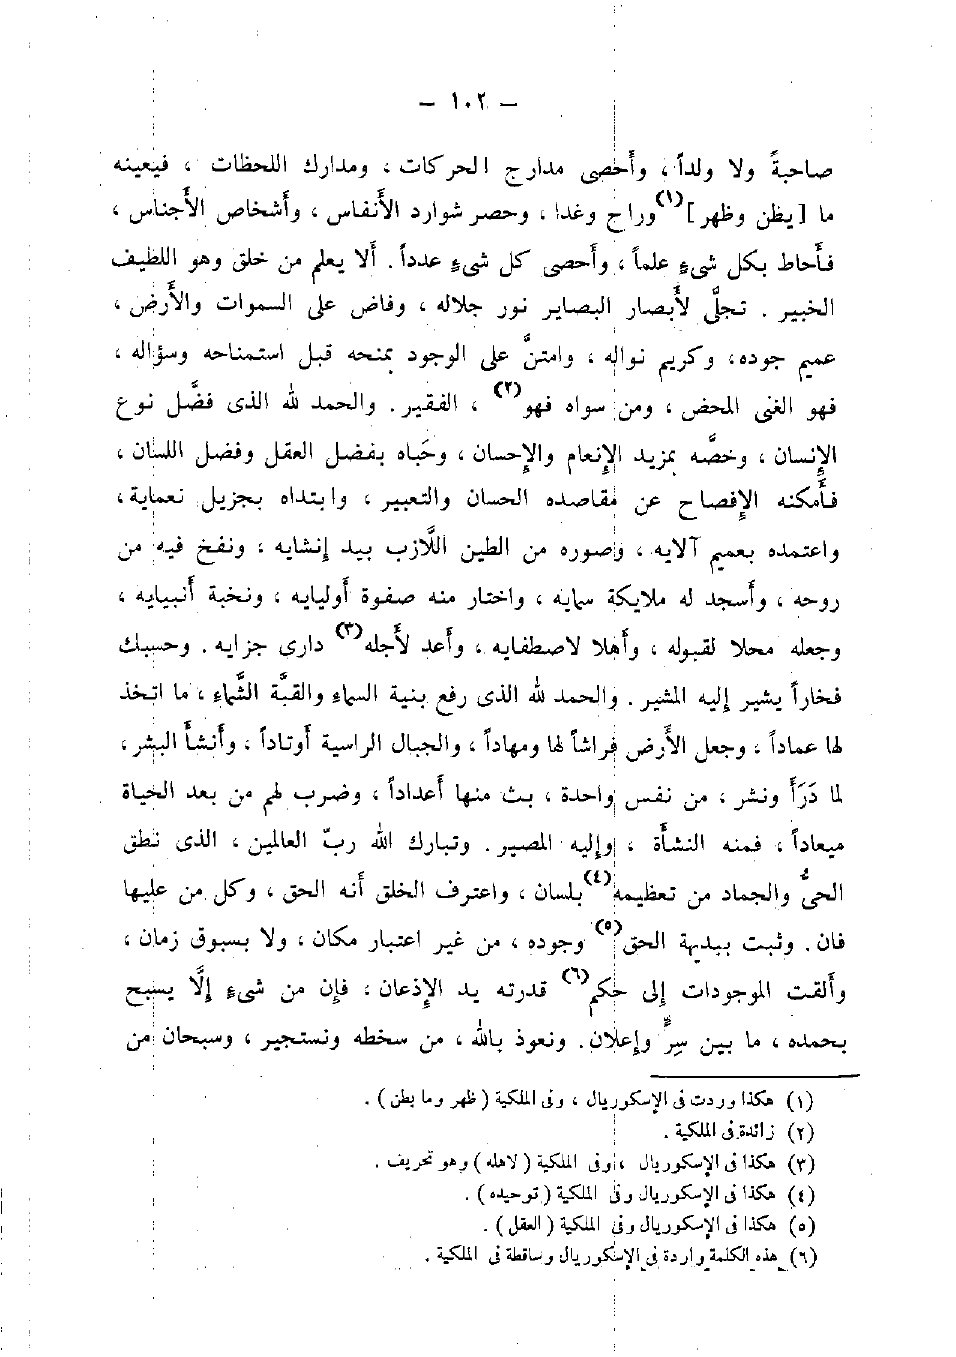 — ١٠٢ —
صاحبةً ولا ولداً ، وأَحْصى مدارج الحركات ، ومدارك اللحظات ، فيعينه
ما [ يظن وظهر ](١) وراح وغدا ، وحصر شوارد الأنفاس ، وأَشخاص الأَجناس ،
فأَحاط بكل شىءٍ علماً ، وأَحصى كل شىءٍ عدداً . أَلا يعلم من خلق وهو اللطيف
الخبير . تجلَّى لأَبصار البصاير نور جلاله ، وفاض على السموات والأَرض ،
عميم جوده ، وكريم نواله ، وامتنَّ على الوجود بمنحه قبل استمناحه وسؤاله ،
فهو الغنى المحض ، ومن سواه فهو(٢) ، الفقير . والحمد لله الذى فضَّل نوع
الإِنسان ، وخصَّه بمزيد الإِنعام والإِحسان ، وحَباه بفضل العقل وفضل اللسان ،
فأَمكنه الإِفصاح عن مقاصده الحسان والتعبير ، وابتداه بجزيل نعمايه ،
واعتمده بعميم آلايه ، وصوره من الطين اللَّازب بيد إِنشايه ، ونفخ فيه من
روحه ، وأَسجد له ملايكة سمايه ، واختار منه صفوة أَوليايه ، ونخبة أَنبيايه ،
وجعله محلا لقبوله ، وأَهلا لاصطفايه ، وأَعد لأَجله(٣) دارى جزايه . وحسبك
فخاراً يشير إِليه المشير . والحمد لله الذى رفع بنية السماء والقبَّة الشَّماء ، ما اتخذ
لها عماداً ، وجعل الأَرض فراشاً لها ومهاداً ، والجبال الراسية أَوتاداً ، وأَنشأَ البشر ،
لما ذَرَأَ ونشر ، من نفس واحدة ، بث منها أَعداداً ، وضرب لهم من بعد الحياة
ميعاداً ، فمنه النشأَة ، وإِليه المصير . وتبارك الله ربّ العالمين ، الذى نطق
الحىُّ والجماد من تعظيمه(٤) بلسان ، واعترف الخلق أَنه الحق ، وكل من عليها
فان . وثبت ببديهة الحق(٥) وجوده ، من غير اعتبار مكان ، ولا بسبوق زمان ،
وأَلقت الموجودات إِلى حُكم(٦) قدرته يد الإِذعان ، فإِن من شىءٍ إِلَّا يسبح
بحمده ، ما بين سِرٍّ وإِعلان . ونعوذ بالله ، من سخطه ونستجير ، وسبحان من
(١) هكذا وردت فى الإسكوريال ، وفى الملكية ( ظهر وما بطن ) .
(٢) زائدة فى الملكية .
(٣) هكذا فى الإسكوريال ، وفى الملكية ( لاهله ) وهو تحريف .
(٤) هكذا فى الإسكوريال وفى الملكية ( توحيده ) .
(٥) هكذا فى الإسكوريال وفى الملكية ( العقل ) .
(٦) هذه الكلمة واردة فى الإسكوريال وساقطة فى الملكية .